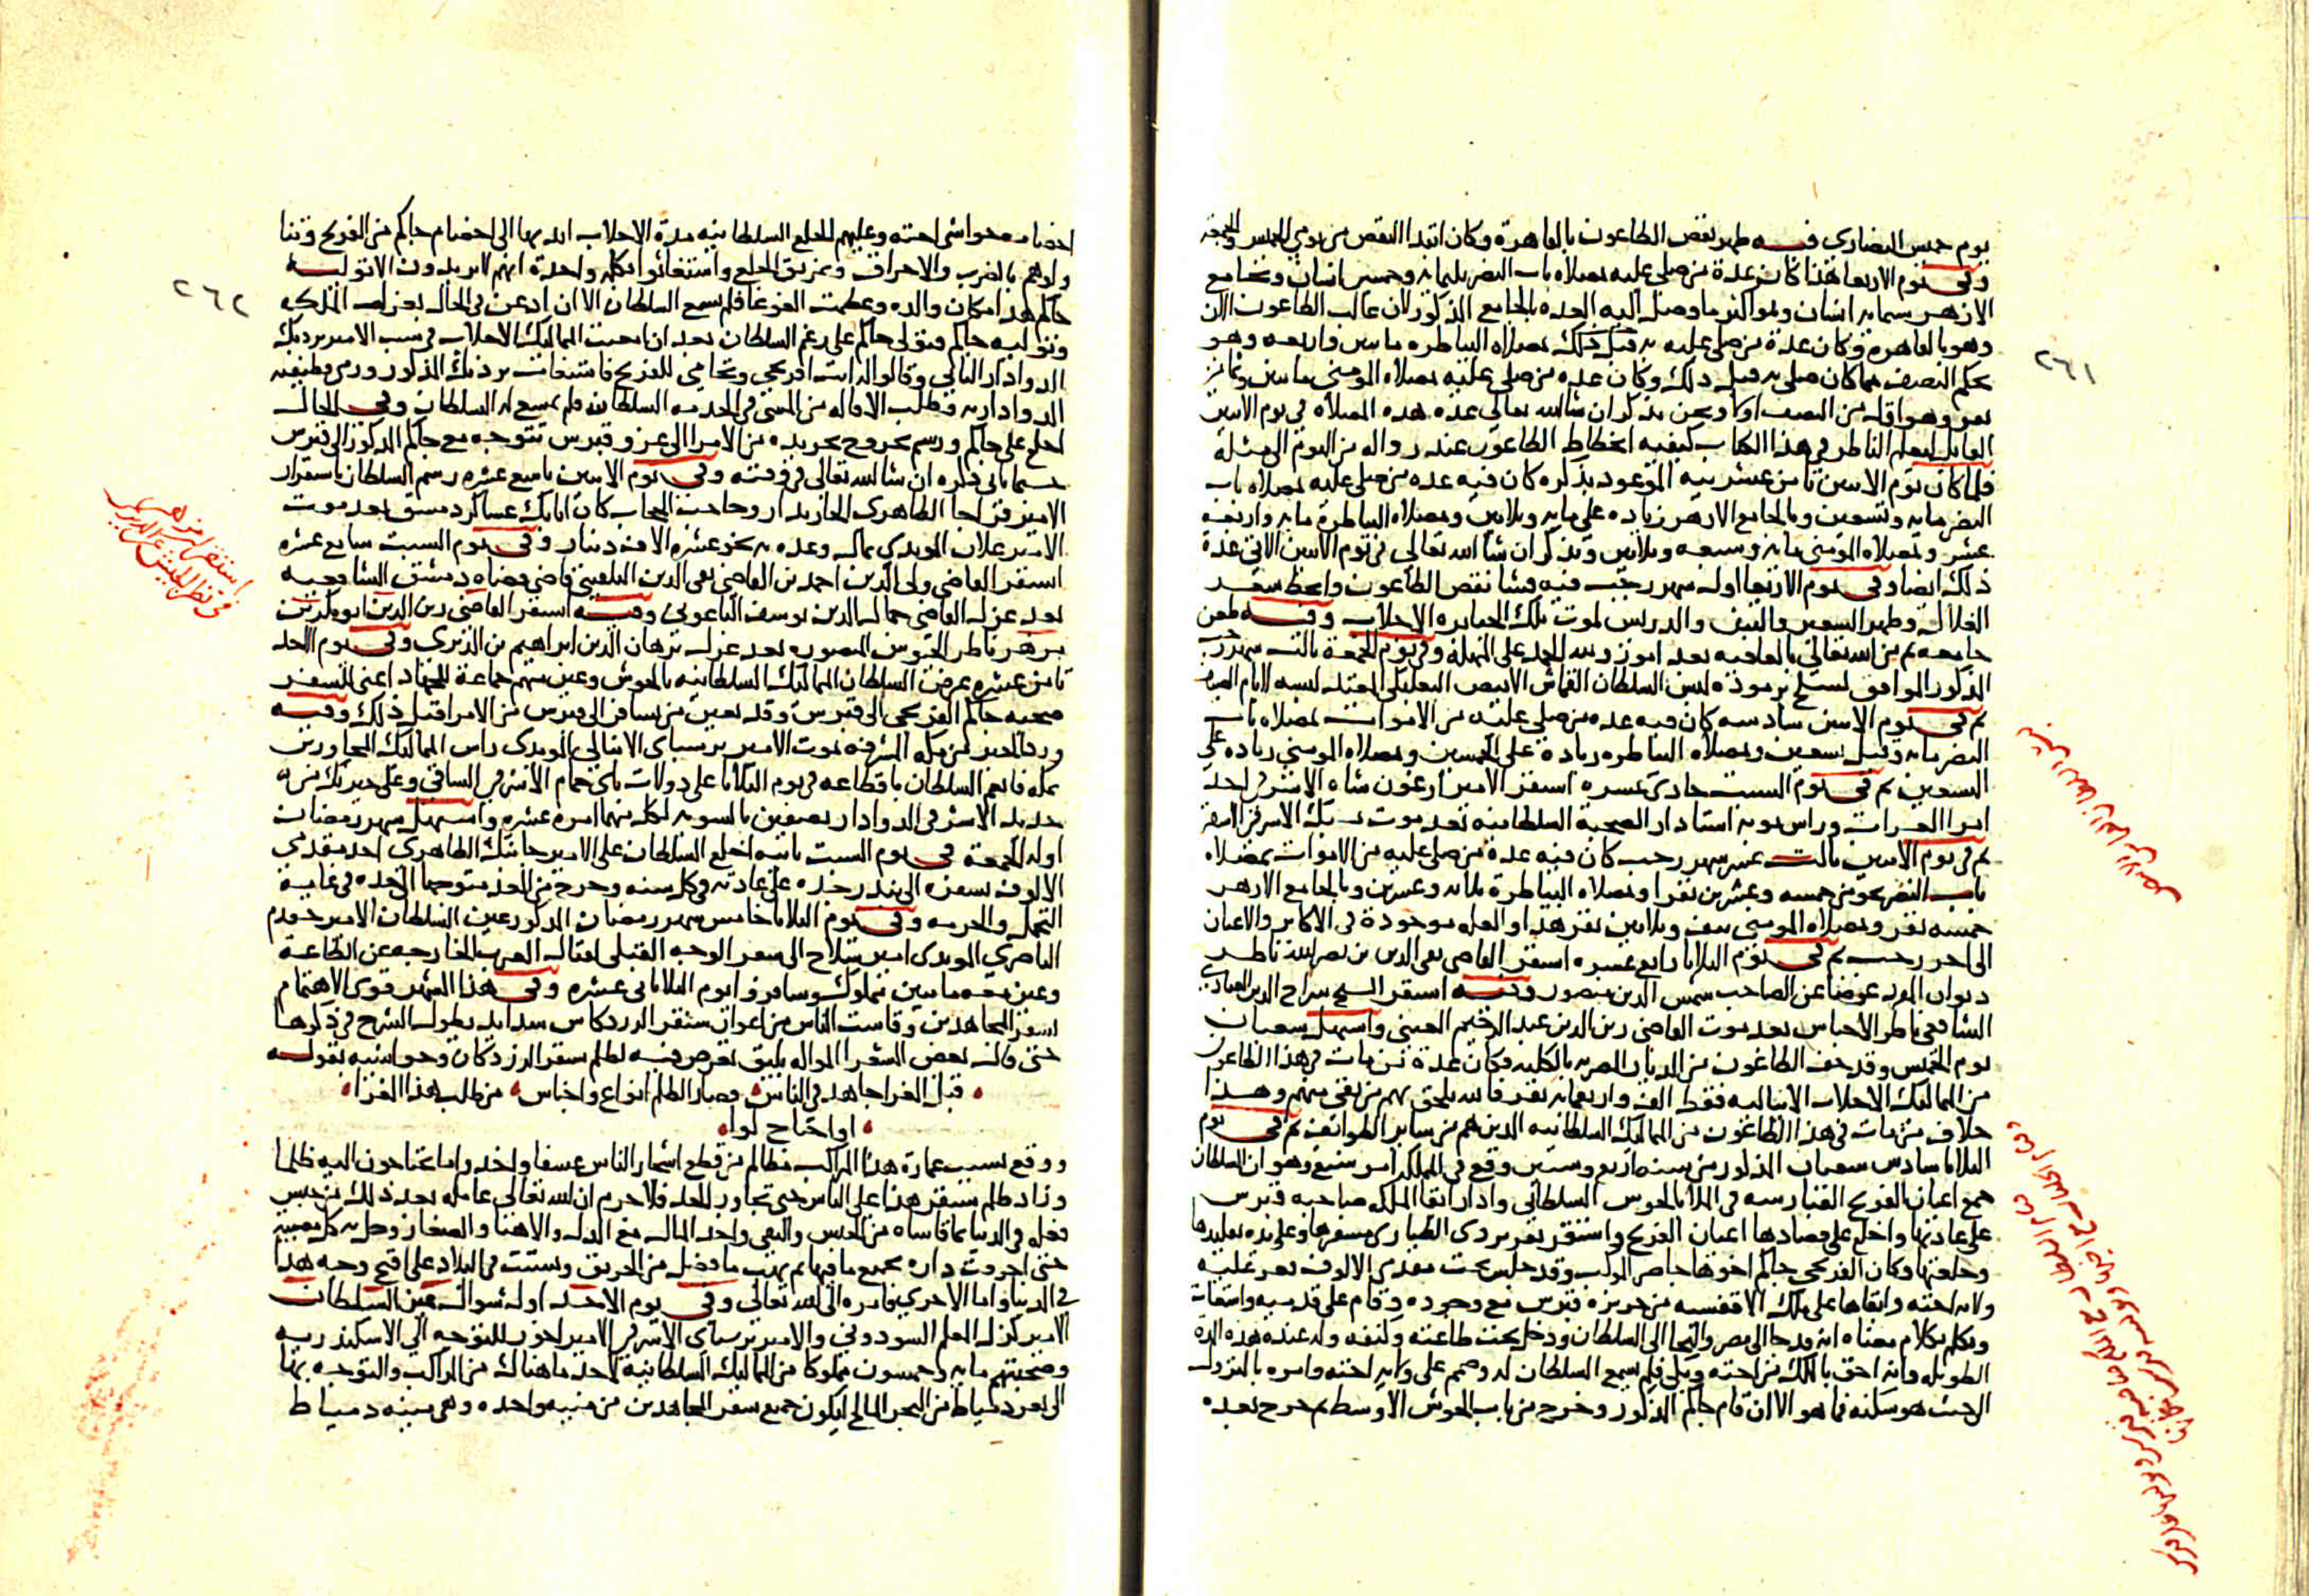 يوم خميس النصارى وفيه ظهر نقص الطاعون بالقاهرة وكان ابتدا النقص من يومي الخميس والجمعة
وفي يوم الاربعا هذا كان عدة من صلي عليه بمصلاه باب النصر وخمس انسان وبجامع
الازهر انسان وهو اكثر ما وصل اليه العدة بالجامع المذكور لان غالب الطاعون الان
وهو بالقاهرة وكان عدة من صلي عليه به قبل ذلك بمصلاه البياطره مايتين واربعه وهو
بحكم النصف مما كان صلي به قبل ذلك وكان عدة من صلي عليه بمصلاه المومني مايتين وثمانين
نفر وهو اقل من النصف اولا ونحن نذكر ان شا الله تعالى عدة هذه المصلاه في يوم الاثنين
القابل ليعلم الناظر في هذا الكتاب كيفيه انحطاط الطاعون عند زواله من اليوم الى مثله
فلما كان يوم الاثنين ثامن عشرينه الموعود بذكره كان فيه عدة من صلي عليه بمصلاه باب
النصر مايه وتسعين وبالجامع الازهر زياده على مايه وثلاثين وبمصلاه البياطرة مايه واربعه
عشر وبمصلاه المومني مايه وسبعه وثلاثين ونذكر ان شا الله تعالى في يوم الاثنين الاتي عدة
ذلك ايضا وفي يوم الاربعا اول شهر رجب فيه فشا نقص الطاعون وانحط سعر
الغلال وظهر الشعير والتبن والدريس لموت تلك الجبابره الاجلاب وفيه طعن
جامعه ثم من الله تعالى بالعافيه بعد امور ولله الحمد على المهله وفي يوم الجمعة ثالث شهر رجب
المذكور الموافق لسلخ برموده لبس السلطان القماش الابيض البعلبكي المعتد لبسه لايام الصيف
ثم في يوم الاثنين سادسه كان فيه عدة من صلي عليه من الاموات بمصلاه باب
النصر مايه وقيل تسعين وبمصلاه البياطره زيادة على الخمسين وبمصلاه المومني زياده على
السبعين ثم في يوم السبت حادي عشره استقر الامير ارغون شاه الاشرفي احد
امرا العشرات وراس نوبه استادار الصحبة السلطانيه بعد موت يشبك الاشرفي
ثم في يوم الاثنين ثالث عشر شهر رجب كان فيه عدة من صلي عليه من الاموات بمصلاه
باب النصر نحو من خمسه وعشرين نفرا وبمصلاه البياطرة ثمانيه وعشرين وبالجامع الازهر
خمسه نفر وبمصلاه المومني نيف وثلاثين نفر هذا والعله موجودة في الاكابر والاعيان
الى اخر رجب ثم في يوم الثلاثا رابع عشره استقر القاضي تقي الدين بن نصر الله ناظر
ديوان المفرد عوضا عن الصاحب شمس الدين منصور وفيه استقر الشيخ سراج الدين العبادي
الشافعي ناظر الاحباس بعد موت القاضي زين الدين عبد الرحيم العيني واستهل شعبان
يوم الخميس وقد خف الطاعون من الديار المصريه بالكليه وكان عدة من مات في هذا الطاعون
من المماليك الاجلاب الاينالية فقط الف واربعمايه نفر فالله يلحق بهم من بقي منهم وهذا
خلاف من مات في هذا الطاعون من المماليك السلطانيه الذين هم من ساير الطوايف ثم في يوم
الثلاثا سادس شعبان المذكور من سنه اربع وستين وقع في المملكه امر شنيع وهو ان السلطان
جمع اعيان الفرنج القبارسه في الملا بالحوش السلطاني واراد ابقا الملكه صاحبه قبرس
على عادتها واخلع على قصادها اعيان الفرنج واستقر تغري بردي الطياري مسفرها وعلى يده تقليدها
وخلعتها وكان الفرنجي جاكم اخوها حاضر الموكب وقد جلس تحت مقدمي الالوف فعز عليه
ولايه اخته وابقاها على ملك الافقسيه من جزيرة قبرس مع وجوده وقام على قدميه واستغاث
وتكلم بكلام معناه انه قد جا الى مصر والتجا الى السلطان ودخل تحت طاعته وكنفه وله عنده هذه المدة
الطويله وانه احق بالملك من اخته وبكى فلم يسمع السلطان له وصمم على ولايه اخته وامره بالنزول
الى حيث هو سكنه فما هو الا ان قام جاكم المذكور وخرج من باب الحوش الاوسط ثم خرج بعده
٢٦١
اخصامه حواشي اخته وعليهم الخلع السلطانيه مدت الاجلاب ايديها الى اخصام جاكم من الفرنج وتناولوهم
بالضرب والاخراق وتمزيق الخلع واستغاثوا بكلمه واحدة انهم لا يريدون الا توليه
جاكم هذا مكان والده وعظمت الغوغا فلم يسع السلطان الا ان اذعن في الحال بعزل الملكه
وتوليه جاكم فتولى جاكم على رغم السلطان بعد ان امعنت المماليك الاجلاب في سب الامير بردبك
الدوادار الثاني وقالوا له انت افرنجي وتحامي للفرنج فاستغاث بردبك المذكور ورمى وظيفه
الدوادارية وطلب الاقاله من المشي في الخدمه السلطانيه فلم يسمع له السلطان وفي الحال
اخلع على جاكم ورسم بخروج تجريده من الامرا الى غزو قبرس تتوجه مع جاكم المذكور الى قبرس
حسبما ياتي ذكره ان شا الله تعالى في وقته وفي يوم الاثنين تاسع عشره رسم السلطان باستقرار
الامير قراجا الظاهري الخازندار وحاجب الحجاب كان اتابك عساكر دمشق بعد موت
الامير علان المويدي بمال وعده به نحو عشره الاف دينار وفي يوم السبت سابع عشره
استقر القاضي ولي الدين احمد بن القاضي تقي الدين البلقيني قاضي قضاه دمشق الشافعيه
بعد عزل القاضي جمال الدين يوسف الباعوني وفيه استقر القاضي زين الدين ابو بكر بن
مزهر ناظر الجيوش المنصوره بعد عزل برهان الدين ابراهيم بن الديري وفي يوم الاحد
ثامن عشره عرض السلطان المماليك السلطانيه بالحوش وعين منهم جماعة للجهاد اعني للسفر
صحبه جاكم الفرنجي الى قبرس وقد تعين من يسافر الى قبرس من الامرا قبل ذلك وفيه
ورد الخبر من مكه المشرفه بموت الامير برسباي الاينالي المويدي راس المماليك المجاورين
بمكه فانعم السلطان باقطاعه في يوم الثلاثا على دولات باي حمام الاشرفي الساقي وعلى جيربك من
حديد الاشرفي الدوادار نصفين بالسويه لكل منهما امره عشره واستهل شهر رمضان
اوله الجمعة في يوم السبت ثانيه اخلع السلطان على الامير جانبك الظاهري احد مقدمي
الالوف بسفره الى بندر جده على عادته في كل سنه وخرج من الغد متوجها الى جده في غاية
التجمل والحرمه وفي يوم الثلاثا خامس شهر رمضان المذكور عين السلطان الامير خشقدم
الناصري المويدي امير سلاح الى سفر الوجه القبلي لقتال العرب الخارجه عن الطاعة
وعين معه مايتين مملوك وسافروا يوم الثلاثا ثاني عشره وفي هذا الشهر قوي الاهتمام
لسفر المجاهدين وقاست الناس من اعوان سنقر الزردكاش شدايد يطول الشرح في ذكرها
حتى قال بعض الشعرا المواله بليق تعرض فيه لظلم سنقر الزردكاش وحواشيه بقوله
قبل الغزا جاهد في الناس وصار الظلم انواع واجناس من طلب هذا الغزا
او احتاج لوا
ووقع بسبب عمارة هذا المراكب مظالم من قطع اشجار الناس عسفا واخذ وا ما يحتاجون اليه ظلما
وزاد ظلم سنقر هذا على الناس حتى تجاوز الحد فلا جرم ان الله تعالى عامله بعد ذلك من جنس
فعله في الدنيا بما قاساه من الحبس والنفي واخذ المال مع الذل والاهنا والصغار وحل به كل مصيبه
حتى احرقت داره بجميع ما فيها ثم نهب ما فضل من الحريق وتشتت في البلاد على اقبح وجه هذا
في الدنيا واما الاخرى فامره الى الله تعالى وفي يوم الاحد اول شوال عين السلطان
الامير كزل المعلم السودوني والامير برسباي الاشرفي الامير اخور للتوجه الى الاسكندريه
وصحبتهم مايه وخمسون مملوكا من المماليك السلطانيه لاخذ ما هناك من المراكب والتوجه بها
الى ثغر دمياط من البحر المالح ليكون جميع سفر المجاهدين من مينه واحده وهي مينه دمياط
٢٦٢
استقر ابن مزهر
في نظر الجيش عن الديري